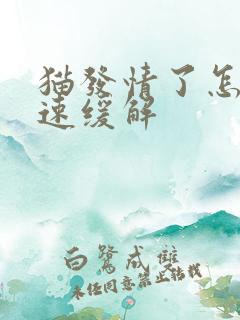 猫發情了怎
速缓解
白鷺成雙
未径同意禁止转载